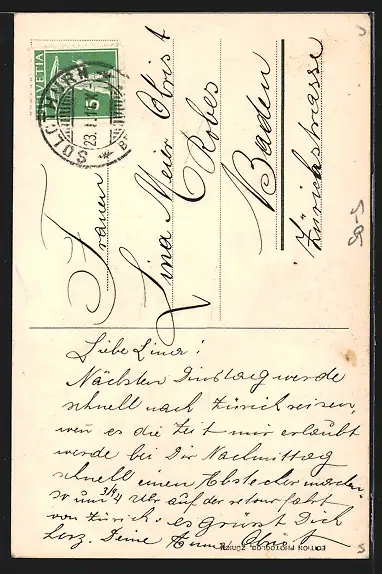 HELVETIA
SOLOTHURN
23.I.15
Frauen
Lina Meier Christ
Robes
Baden
Zürichstrasse
50-5
Liebe Lina!
Nächsten Dinstag werde
schnell nach Zürich reisen,
wen es die Zeit mir erlaubt
werde bei Dir Nachmittag
schnell einen Abstecher machen
so um 3/4 4 Uhr auf der retour fahrt
von Zürich: es grüsst Dich
herz. Deine Christ
EDITION PHOTOGLOB, ZÜRICH